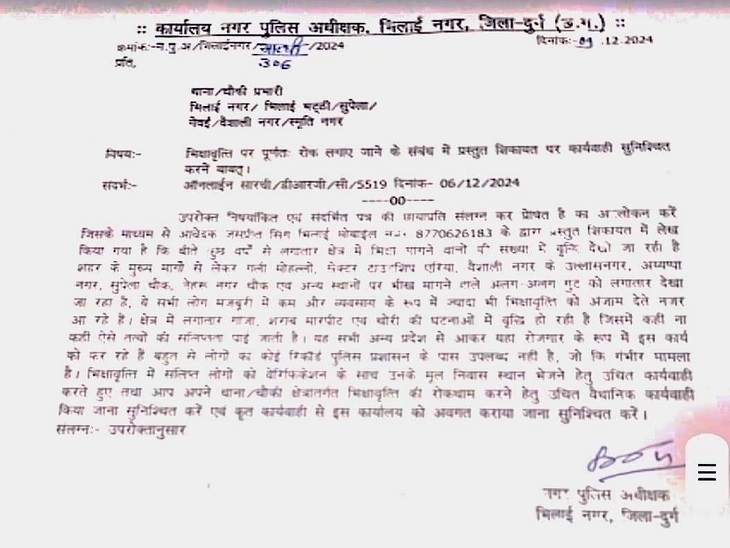 :: कार्यालय नगर पुलिस अधीक्षक, भिलाई नगर, जिला-दुर्ग (छ.ग.) ::
क्रमांक:-न.पु.अ/भिलाईनगर/ /2024
दिनांक:-09.12.2024
306
प्रति,
थाना/चौकी प्रभारी
भिलाई नगर/ भिलाई भट्ठी/सुपेला/
नेवई/वैशाली नगर/स्मृति नगर
विषय:- भिक्षावृत्ति पर पूर्णतः रोक लगाए जाने के संबंध में प्रस्तुत शिकायत पर कार्यवाही सुनिश्चित
करने बाबत्।
संदर्भ:- ऑनलाईन सारथी/डीआरजी/सी/5519 दिनांक- 06/12/2024
----00----
उपरोक्त विषयांकित एवं संदर्भित पत्र की छायाप्रति संलग्न कर प्रेषित है का अवलोकन करें
जिसके माध्यम से आवेदक जसप्रीत सिंग भिलाई मोबाईल 8770626183 के द्वारा प्रस्तुत शिकायत में लेख
किया गया है कि बीते कुछ वर्षों से लगातार क्षेत्र में भिक्षा मांगने वालों की संख्या में वृद्धि देखी जा रही है
शहर के मुख्य मार्गो से लेकर गली मोहल्लो, सेक्टर टाउनशिप एरिया, वैशाली नगर के उल्लासनगर, अय्यप्पा
नगर, सुपेला चौक, नेहरू नगर चौक एवं अन्य स्थानों पर भीख मांगने वाले अलग-अलग गुट को लगातार देखा
जा रहा है, ये सभी लोग मजबुरी में कम और व्यवसाय के रूप में ज्यादा भी भिक्षावृत्ति को अंजाम देते नजर
आ रहे है। क्षेत्र में लगातार गांजा, शराब मारपीट एवं चोरी की घटनाओं में वृद्धि हो रही है जिसमें कही ना
कही ऐसे तत्वों की संलिप्तता पाई जाती है। यह सभी अन्य प्रदेश से आकर यहा रोजगार के रूप में इस कार्य
को कर रहे है बहुत से लोगों का कोई रिकॉर्ड पुलिस प्रशासन के पास उपलब्ध नही है, जो कि गंभीर मामला
है। भिक्षावृत्ति में संलिप्त लोगों को वेरिफिकेशन के साथ उनके मूल निवास स्थान भेजने हेतु उचित कार्यवाही
करते हुए तथा आप अपने थाना/चौकी क्षेत्रांतर्गत भिक्षावृत्ति की रोकथाम करने हेतु उचित वैधानिक कार्यवाही
किया जाना सुनिश्चित करें एवं कृत कार्यवाही से इस कार्यालय को अवगत कराया जाना सुनिश्चित करें।
संलग्न:- उपरोक्तानुसार
नगर पुलिस अधीक्षक
भिलाई नगर, जिला-दुर्ग